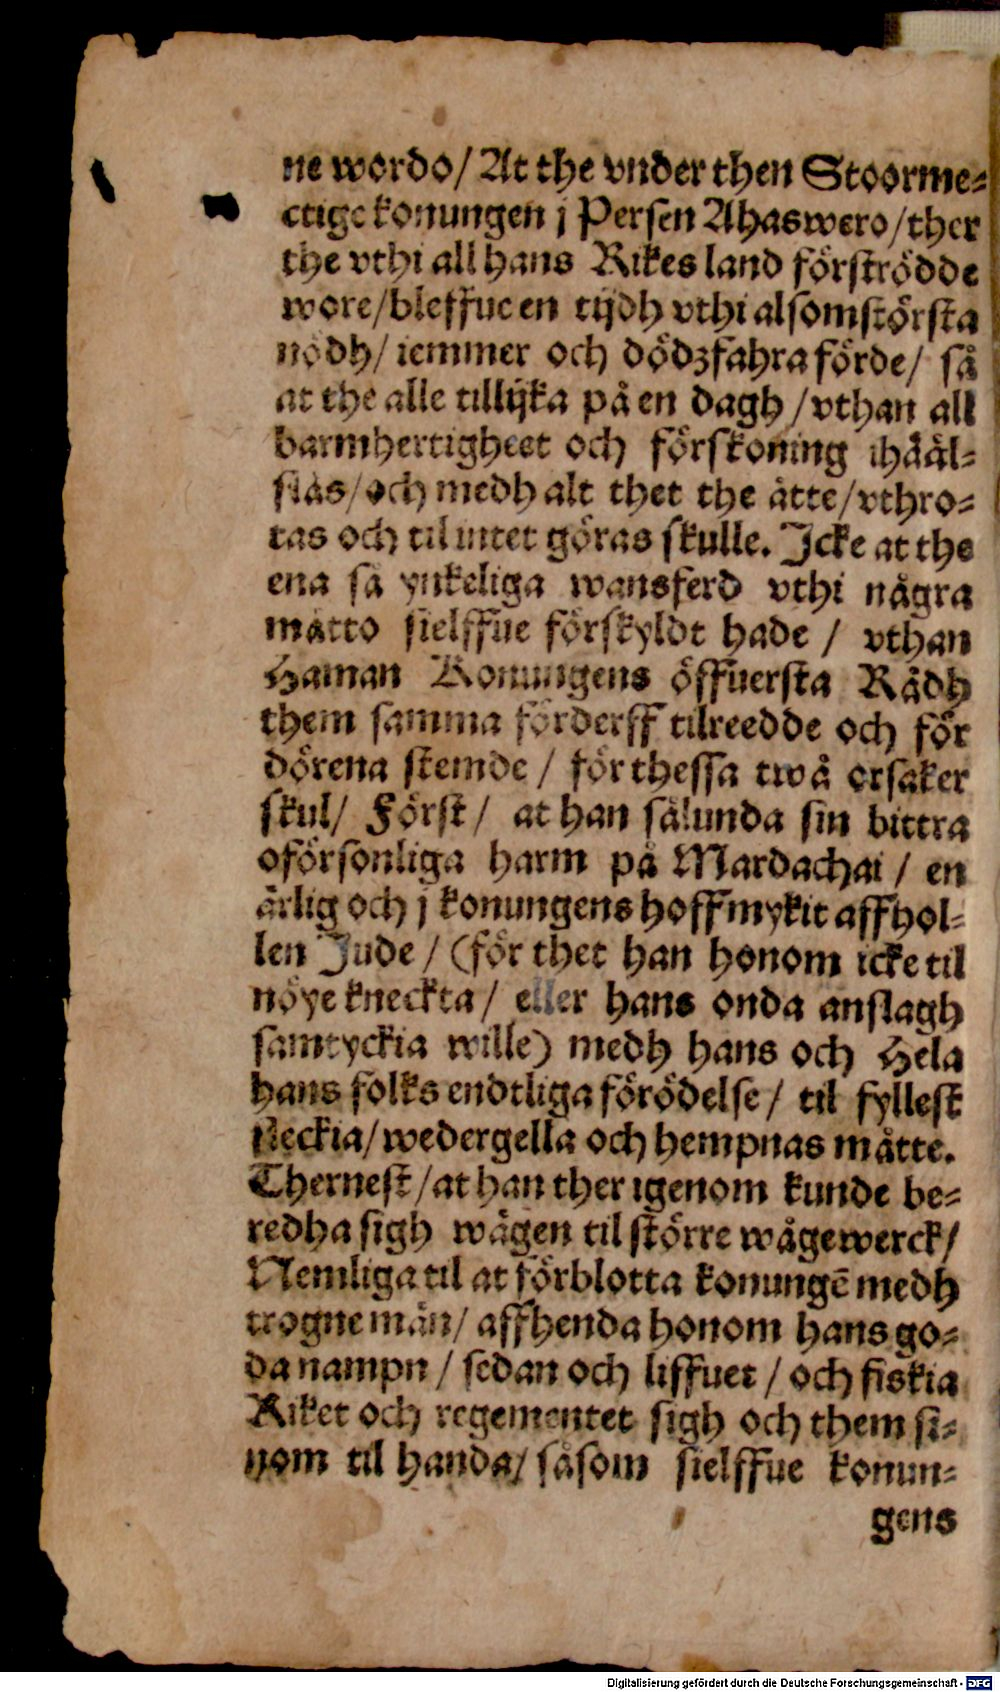 ne wordo/ At the vnder then Stoorme⸗
ctige konungen j Persen Ahaswero/ther
the vthi all hans Rikes land förströdde
wore/bleffue en tijdh vthi alsomstörsta
nödh/ iemmer och dödzfahra förde/ så
at the alle tillijka på en dagh /vthan all
barmhertigheet och förskoning ihääl⸗
slås/och medh alt thet the åtte/vthro⸗
tas och til intet göras skulle. Icke at the
ena så ynkeliga wansferd vthi några
måtto sielffue förskyldt hade / vthan
Haman Konungens öffuersta Rådh
them samma förderff tilreedde och för
dörena stemde / för thessa twå orsaker
skul/ Först/ at han sålunda sin bittra
oförsonliga harm på Mardachai / en
ärlig och j konungens hoff mykit affhol⸗
len Jude / (för thet han honom icke til
nöye kneckta/ eller hans onda anslagh
samtyckia wille) medh hans och Hela
hans folks endtliga förödelse/ til fyllest
sleckia/wedergella och hempnas måtte.
Thernest/at han ther igenom kunde be⸗
redha sigh wägen til större wågewerck/
Nemliga til at förblotta konungē medh
trogne män/ affhenda honom hans go⸗
da nampn / sedan och liffuet / och fiskia
Riket och regementet sigh och them si⸗
nom til handa/ såsom sielffue konun⸗
gens
Digitalisierung gefördert durch die Deutsche Forschungsgemeinschaft - DFG